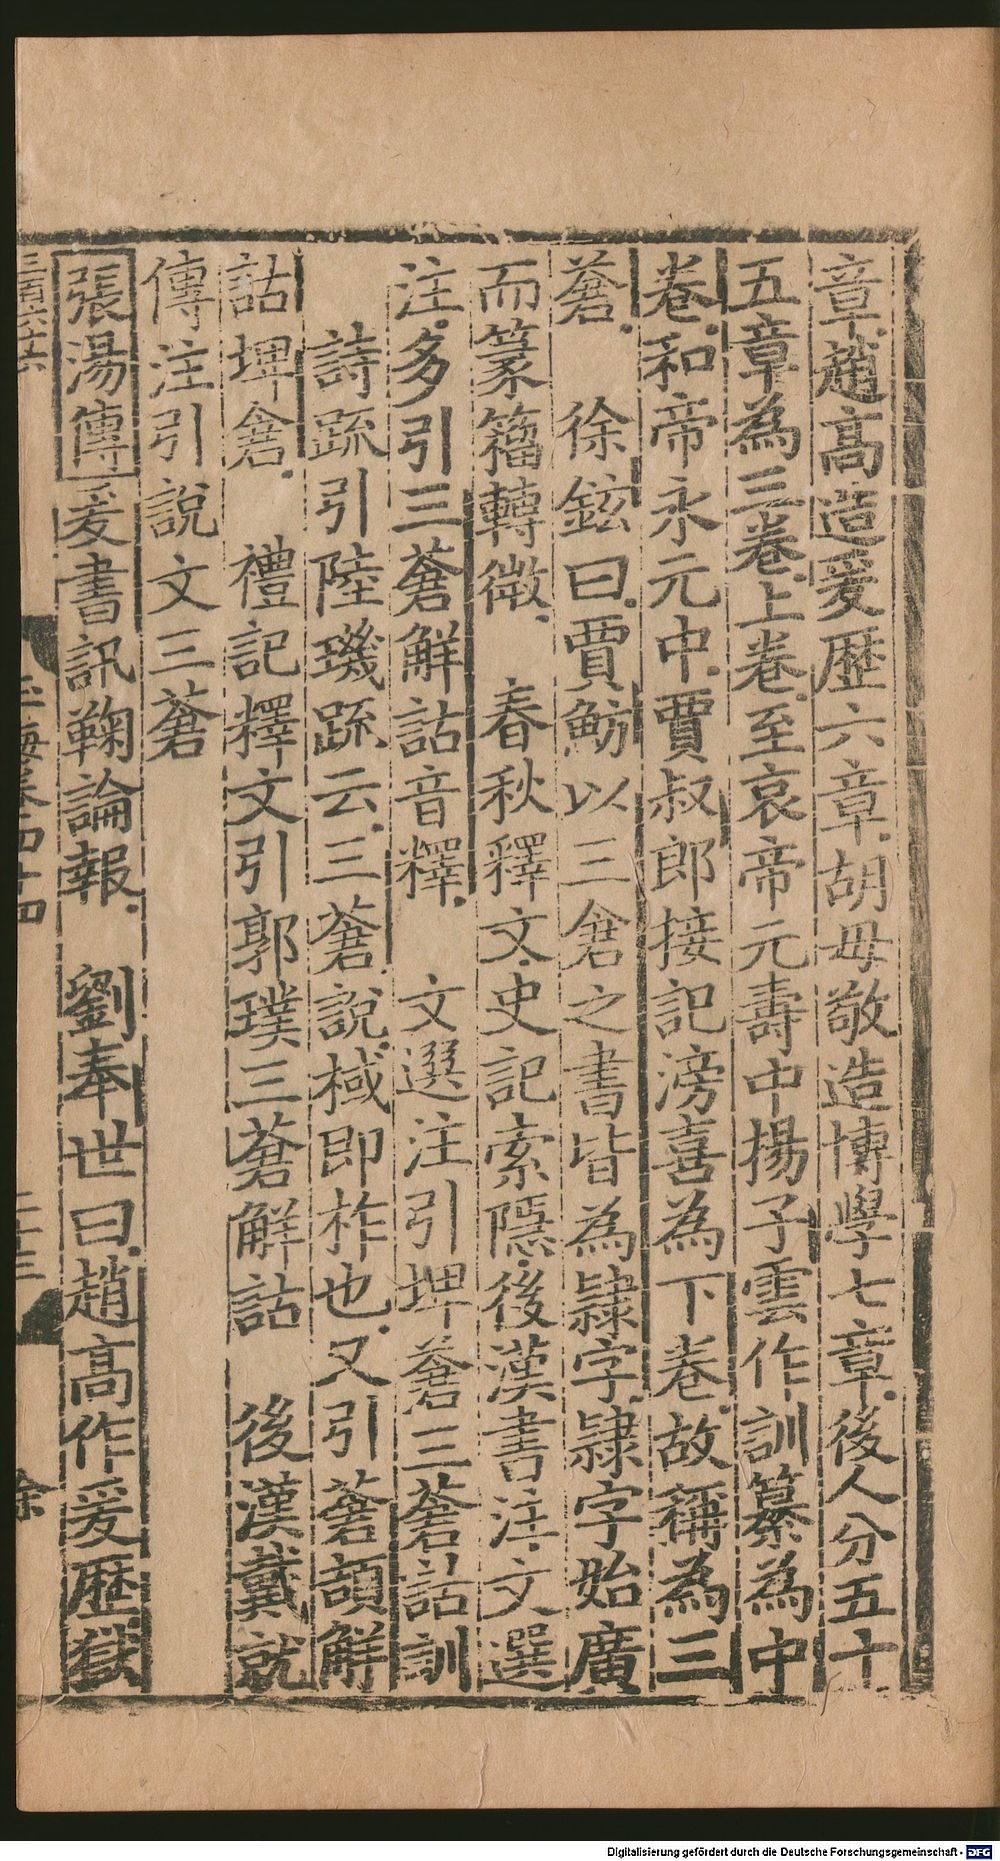 章趙髙造爰歷六章胡毋敬造博學七章後人分五十
五章為三卷上卷至哀帝元壽中揚子雲作訓纂為中
卷和帝永元中賈叔郎接記滂喜為下卷故稱為三
蒼　徐鉉曰賈魴以三倉之書皆為隸字隸字始廣
而篆籀轉微　春秋釋文史記索隱後漢書注文選
注多引三蒼解詁音釋　文選注引埤蒼三蒼詁訓
詩䟽引陸璣䟽云三蒼說棫即柞也又引蒼頡解
詁埤倉　禮記釋文引郭璞三蒼解詁　後漢戴就
傳注引說文三蒼
張湯傳爰書訊鞠論報　劉奉世曰趙髙作爰歷獄
玉海卷四十四
二十三
徐
Digitalisierung gefördert durch die Deutsche Forschungsgemeinschaft - DFG